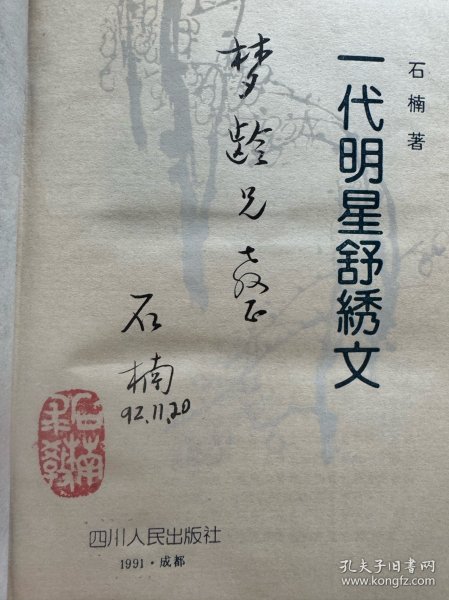 石楠著
一代明星舒绣文
梦龄兄教正
石楠
92.11.20
四川人民出版社
1991·成都
孔夫子旧书网
kongfz.com